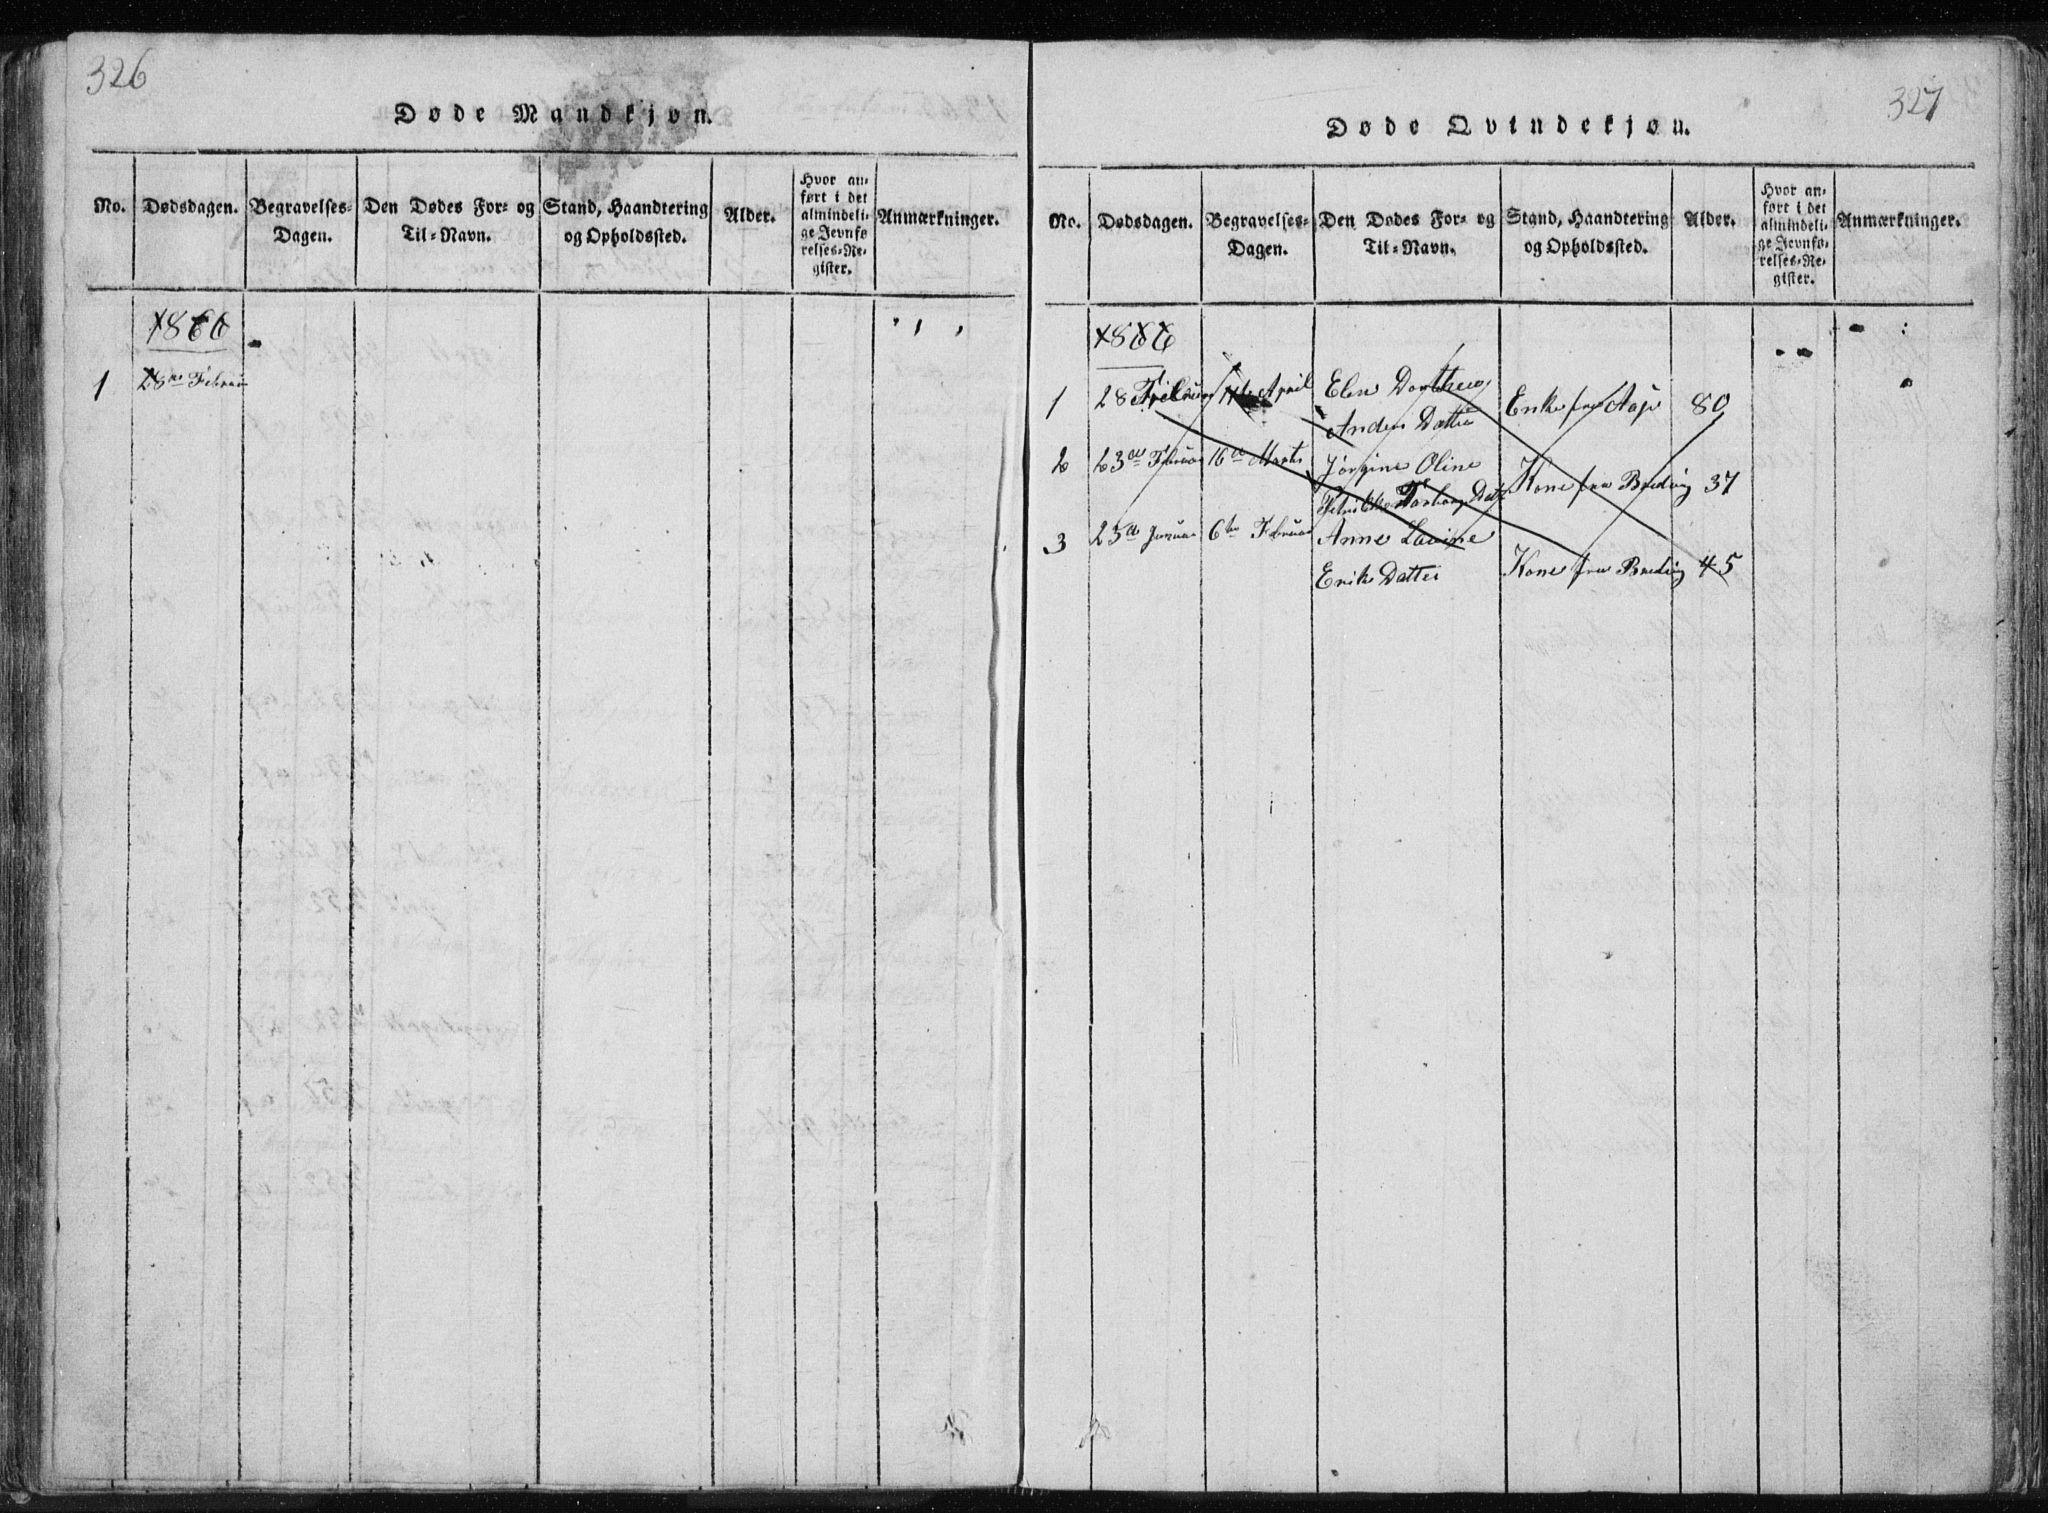 326
Døde Mandkjøn.
No. Dødsdagen. Begravelses-Dagen. Den Dødes For- og Til-Navn. Stand, Haandtering og Opholdssted. Alder. Hvor anført i det almindelige Jevnførelses-Register. Anmærkninger.
1866
1 28de Februar
327
Døde Qvindekjøn.
No. Dødsdagen. Begravelses-Dagen. Den Dødes For- og Til-Navn. Stand, Haandtering og Opholdssted. Alder. Hvor anført i det almindelige Jevnførelses-Register. Anmærkninger.
1866
1 28 Februar April Elen Dorthea
Anders Datter Enke fra Aaje 80
2 23de Februar 16de Marts Jørgine Oline
Datter Kone fra Breding 37
3 25de Januar 6te Februar Anne Lavine
Erik Datter Kone fra Breding 45